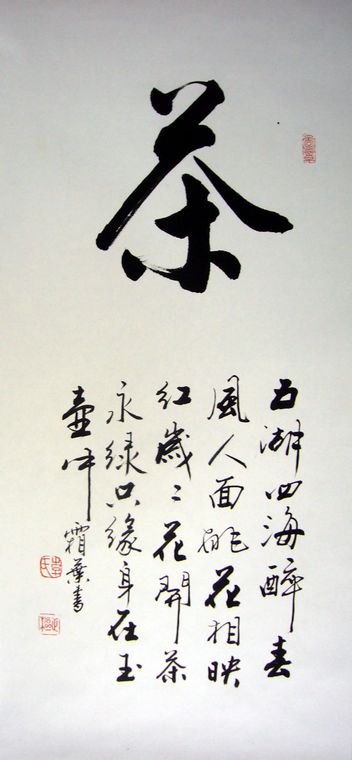 茶
五湖四海醉春
風人面桃花相映
紅歲歲花開茶
永绿只緣身在玉
壺中
霜葉書